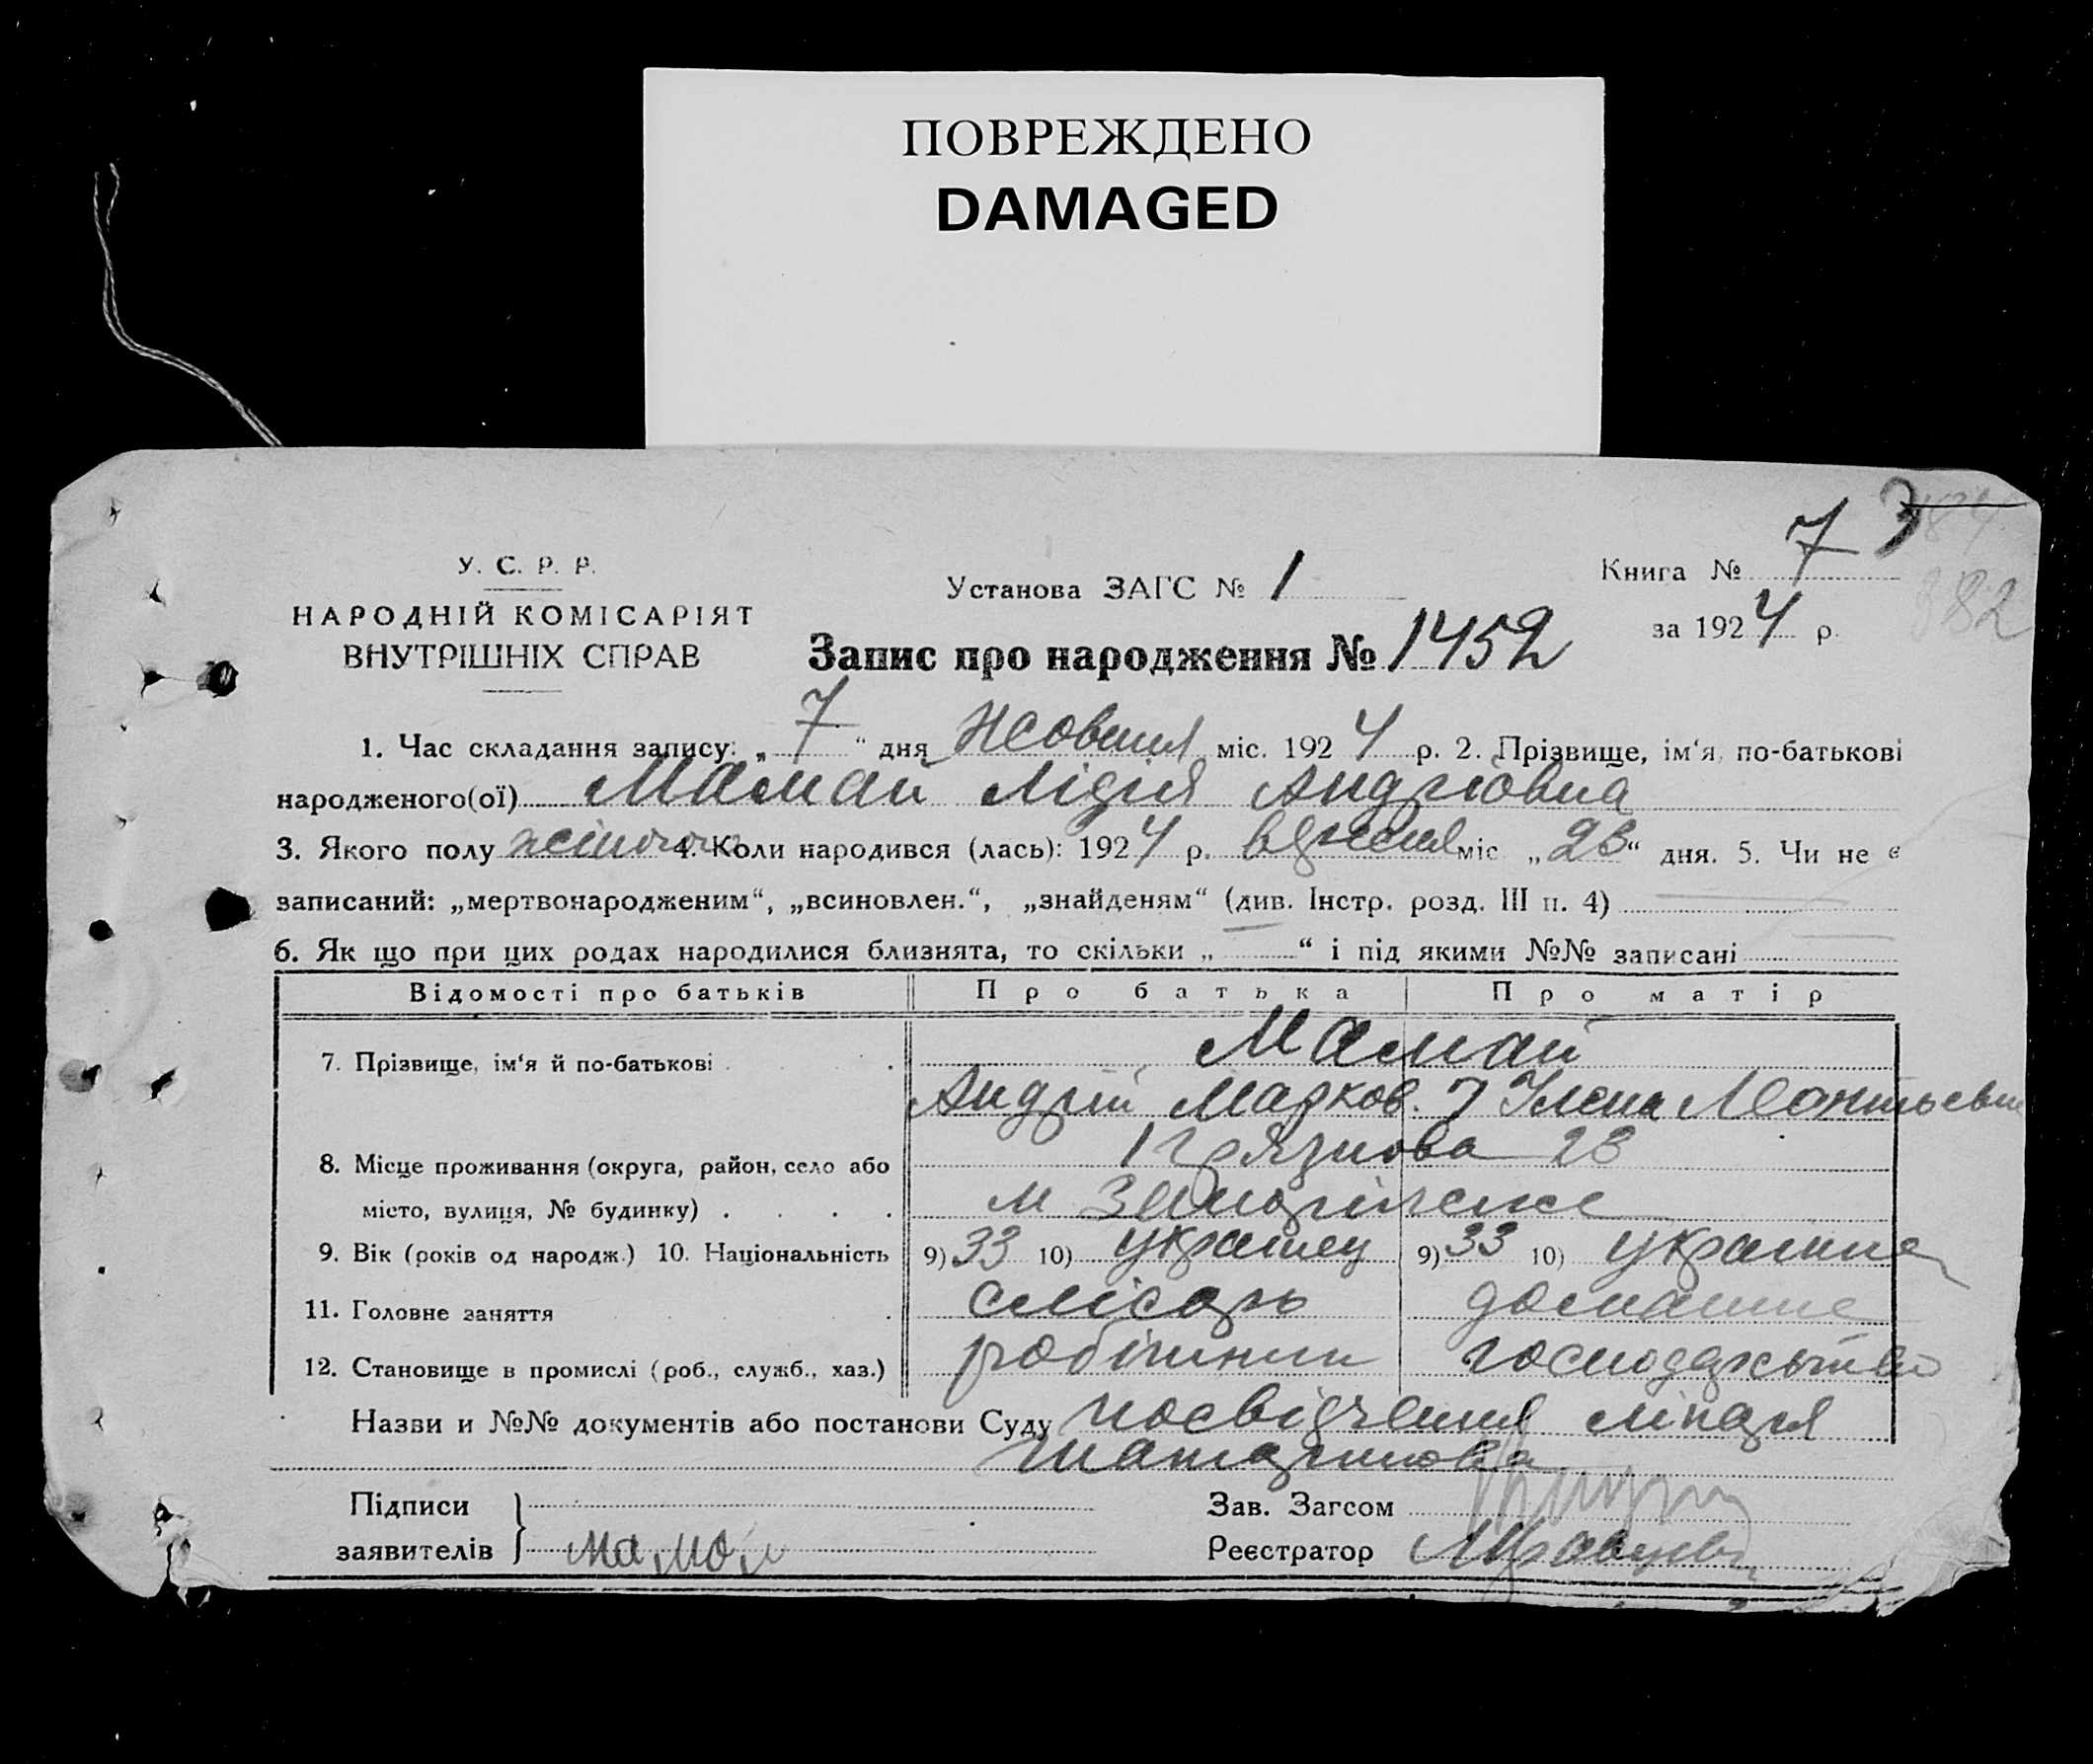 ПОВРЕЖДЕНО
DAMAGED
7 3
У. С. Р. Р.
НАРОДНІЙ КОМІСАРІЯТ
ВНУТРІШНІХ СПРАВ
Установа ЗАГС № 1
Книга № 7
за 1924 р.
382
Запис про народження № 1452
1. Час складання запису: „7“ дня Жовтня міс. 1924 р. 2. Прізвище, ім‘я, по-батькові
народженого(ої) Мамай Лідія Андріовна
3. Якого полу жіночого 4. Коли народився (лась): 1924 р. вдресня міс „23“ дня. 5. Чи не є
записаний: „мертвонародженим“, „всиновлен.“, „знайденям“ (див. Інстр. розд. III п. 4)
6. Як що при цих родах народилися близнята, то скільки „ “ і під якими №№ записані
Відомості про батьків Про батька Про матір
7. Прізвище, ім‘я й по-батькові Мамай
Андрій Марков. Улена Леонтьевна
8. Місце проживання (округа, район, село або Грязнова 23
місто, вулиця, № будинку) м Запоріжже
9. Вік (років од народж.) 10. Національність 9) 33 10) украинец 9) 33 10) украин
11. Головне заняття слісарь домашне
12. Становище в промислі (роб., служб., хаз.) робітник господарьство
Назви и №№ документів або постанови Суду посвідчення лікаря
Підписи
заявителів Мамай
Зав. Загсом
Реєстратор